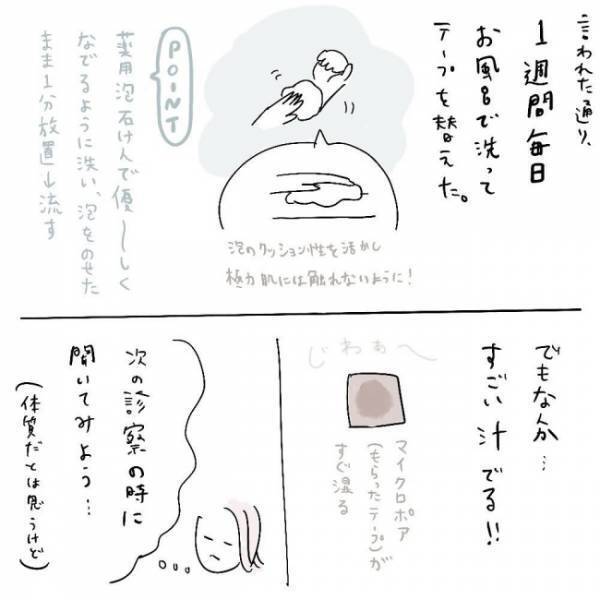 言われた通り、
1週間毎日
お風呂で洗って
テープを替えた。
POINT
薬用泡石けんで優〜しく
なでるように洗い、泡をのせた
まま1分放置→流す
泡のクッション性を活かし
極力肌には触れないように!
でもなんか…
すごい汁でる!!
じわぁ〜
マイクロポア
(もらったテープ)が
すぐ湿る
次の診察の時に
聞いてみよう…
(体質だとは思うけど)